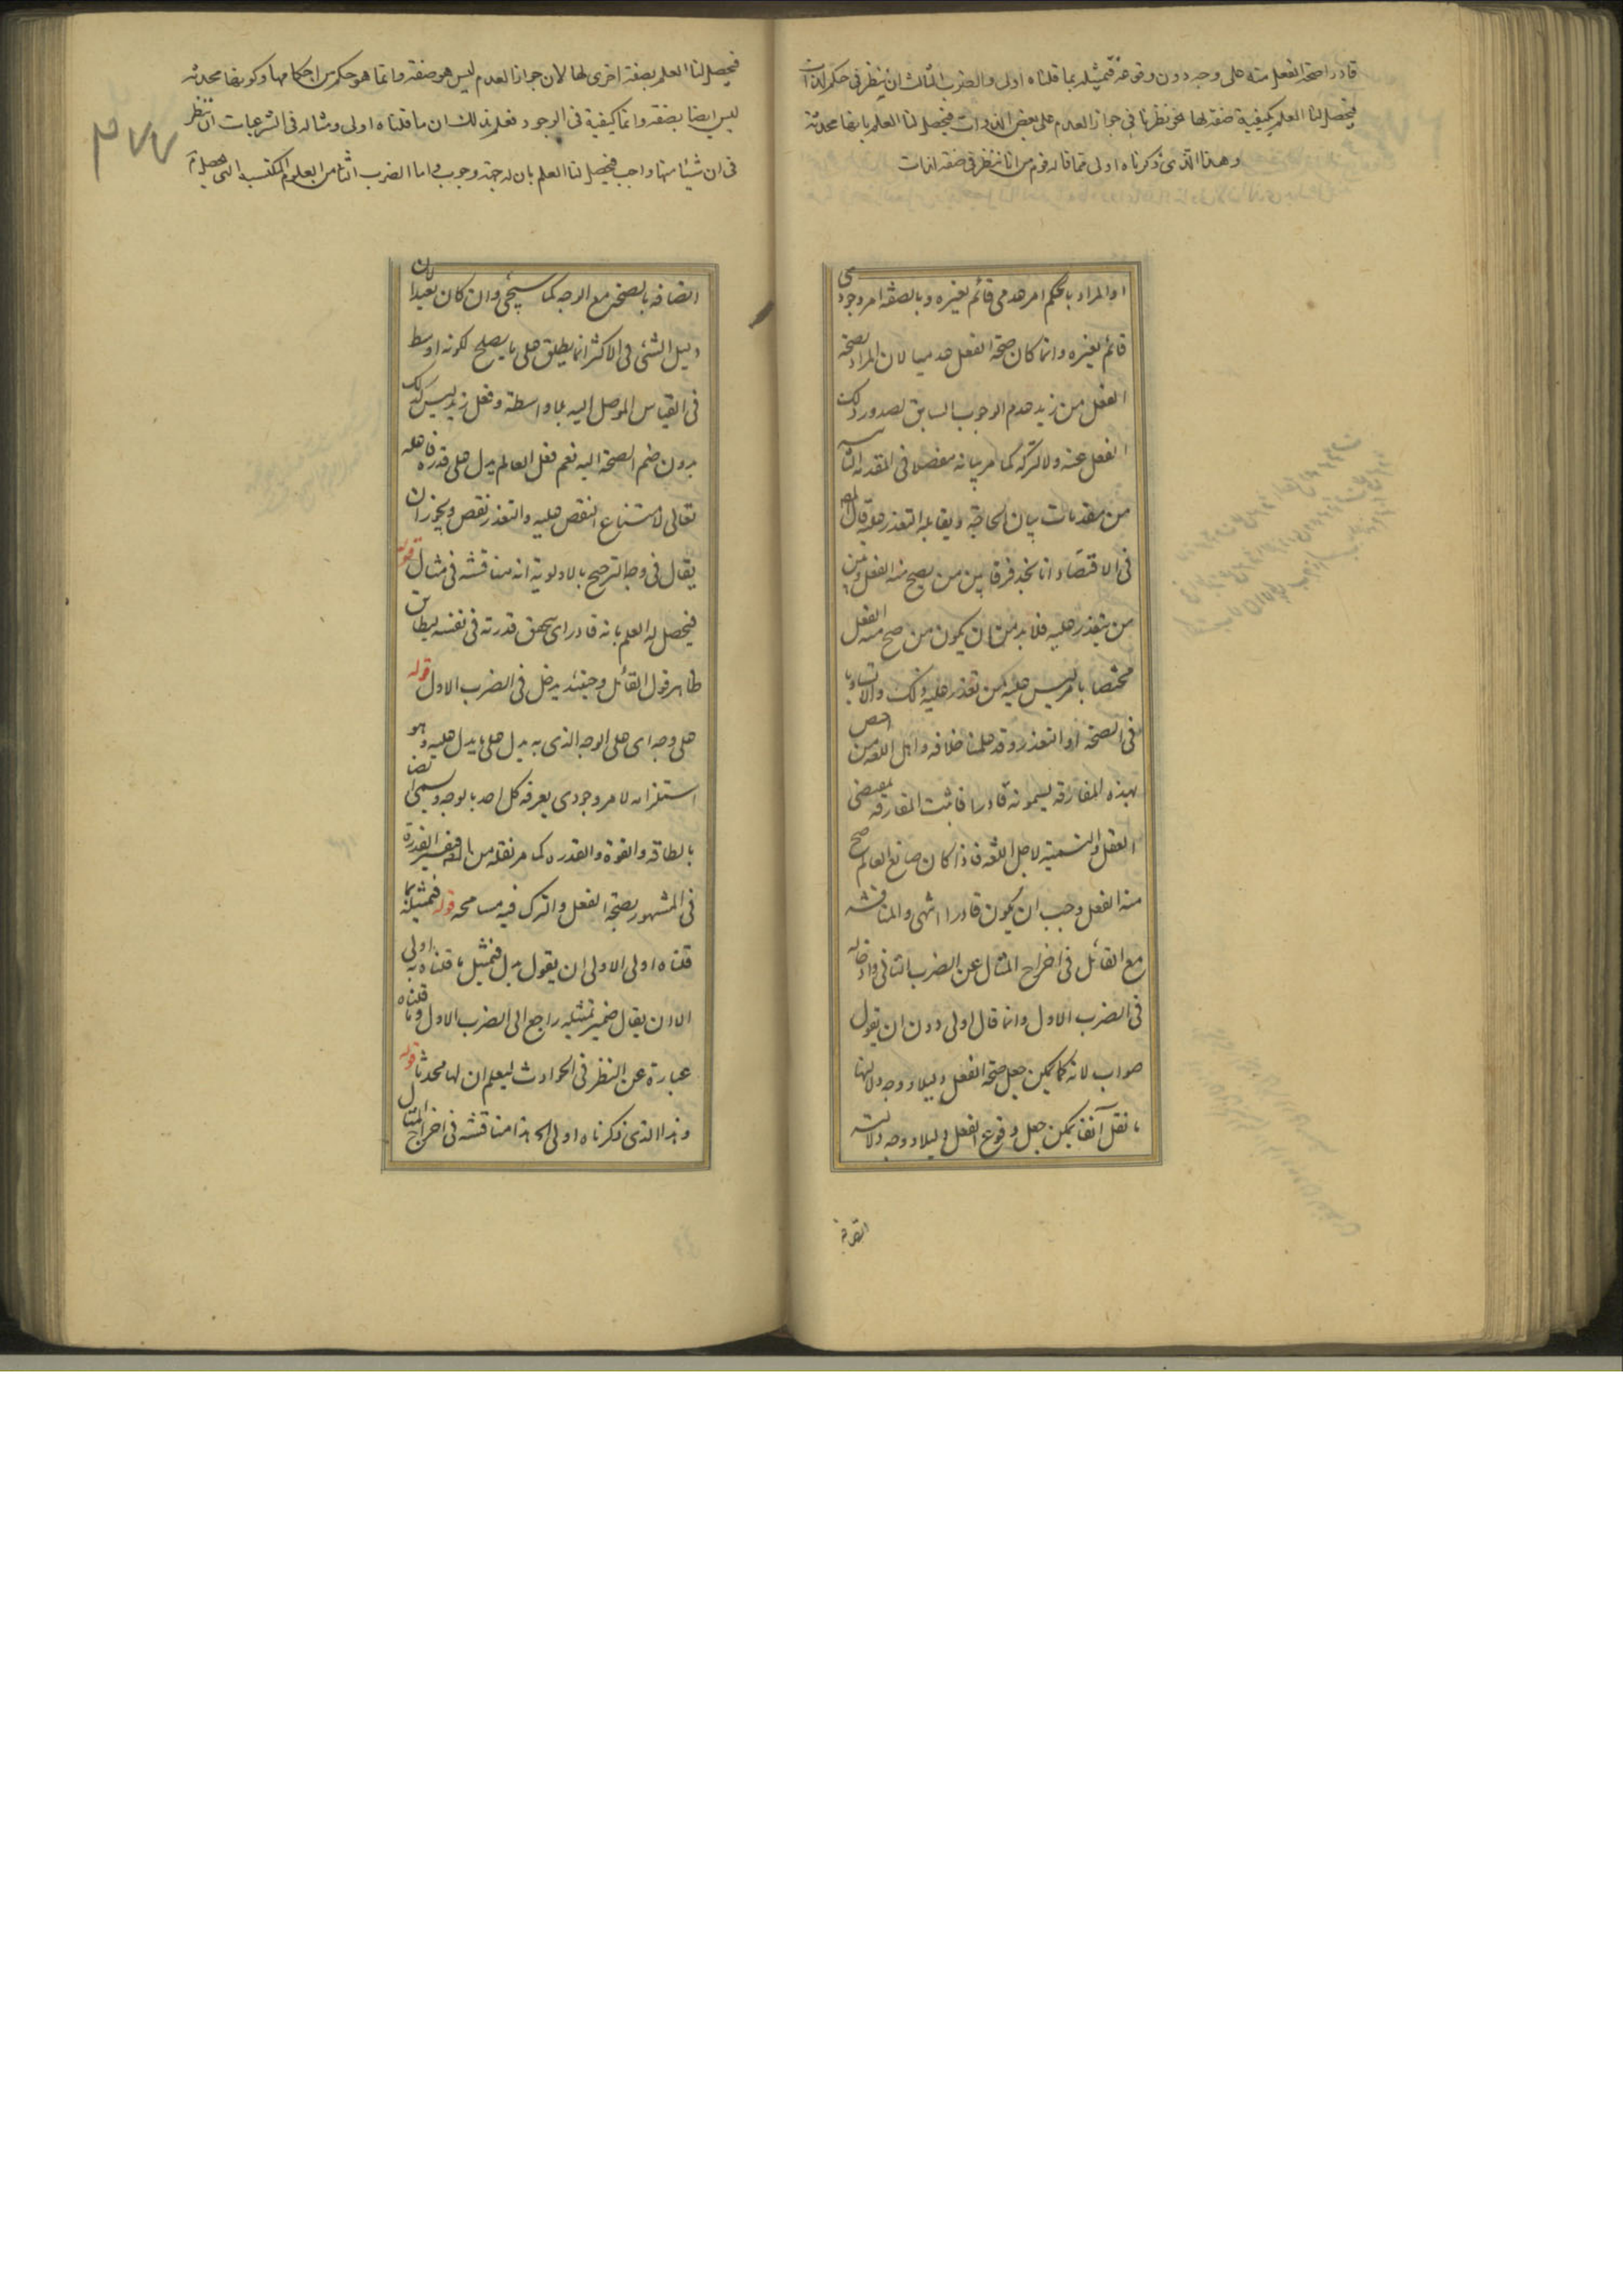 قادرا صحة الفعل منه على وجه دون وقوعه فتمثيله بما قلناه اولى والضرب الثالث ان ينظر فى حكم لذات
فيحصل لنا العلم بكيفية صفة لها نحو نظرنا فى جواز العدم على بعض الذوات فيحصل لنا العلم بانها محدثة
وهذا الذى ذكرناه اولى مما قاله قوم من انا ننظر فى صفة لذات
او المراد بالحكم امر عدمى قائم بغيره وبالصفة امر وجودى
قائم بغيره وانما كان صحة الفعل عدميا لان المراد بصحة
الفعل من زيد عدم الوجوب السابق لصدور ذلك
الفعل عنه ولا تركه كما مر بيانه مفصلا فى المقدمة الثانية
من مقدمات بيان الحاجة ويقابله التعذر عليه قال المص
فى الاقتصاد انا نجد فرقا بين من يصح منه الفعل وبين
من يتعذر عليه فلا بد من ان يكون من صح منه الفعل
مختصا بامر ليس عليه من تعذر عليه ذلك والا تساويا
فى الصحة او التعذر وقد علمنا خلافه واهل اللغة من اختص
بهذه المفارقة يسمونه قادرا فاثبت المفارقة بمقتضى
العقل والتسمية لاجل اللغة فاذا كان صانع العالم صح
منه الفعل وجب ان يكون قادرا انتهى والمناقشة
مع القائل فى اخراج المثال عن الضرب الثانى وادخاله
فى الضرب الاول وانما قال اولى دون ان يقول
صواب لانه كما يمكن جعل صحة الفعل دليلا ووجه دلالتها
ما نقل آنفا يمكن جعل وقوع الفعل دليلا ووجه دلالته
فيحصل لنا العلم بصفة اخرى لها لان جواز العدم ليس هو صفة وانما هو حكم من احكامها وكونها محدثة
ليس ايضا بصفة وانما كيفية فى الوجود فعلم بذلك ان ما قلناه اولى ومثاله فى الشرعيات ان ننظر
فى ان شيئا منها واجب فيحصل لنا العلم بان له جهة وجوب واما الضرب الثانى من العلوم المكتسبة التى تحصل
٣٧٧
اتصافه بالصحة مع الوجه كما سيجئ وان كان بعيدا لان
دليل الشئ فى الاكثر انما يطلق على ما يصلح لكونه اوسط
فى القياس الموصل اليه بلا واسطة وفعل زيد ليس كذلك
بدون ضم الصحة اليه نعم فعل العالم يدل على قدرة فاعله
تعالى لامتناع النقص عليه والتعذر نقص ويجوز ان
يقال فى وجه الترجيح بالاولوية انه مناقشة فى مثال قوله
فيحصل له العلم بانه قادر اى يتحقق قدرته فى نفسه ليطابق
ظاهر قول القائل وحينئذ يدخل فى الضرب الاول قوله
على وجه اى على الوجه الذى به يدل على ما يدل عليه وهو
استلزامه لامر وجودى يعرفه كل احد بالوجه ويسمى ايضا
بالطاقة والقوة والقدرة كما مر نقله من المص فتفسير القدرة
فى المشهور بصحة الفعل والترك فيه مسامحة قوله فتمثيله بما
قلناه اولى الاولى ان يقول بدل فتمثيل ما قلناه به اولى
الا ان يقال ضمير تمثيله راجع الى الضرب الاول وما قلناه
عبارة عن النظر فى الحوادث ليعلم ان لها محدثا قوله
وهذا الذى ذكرناه اولى الخ هذا مناقشة فى اخراج المثال